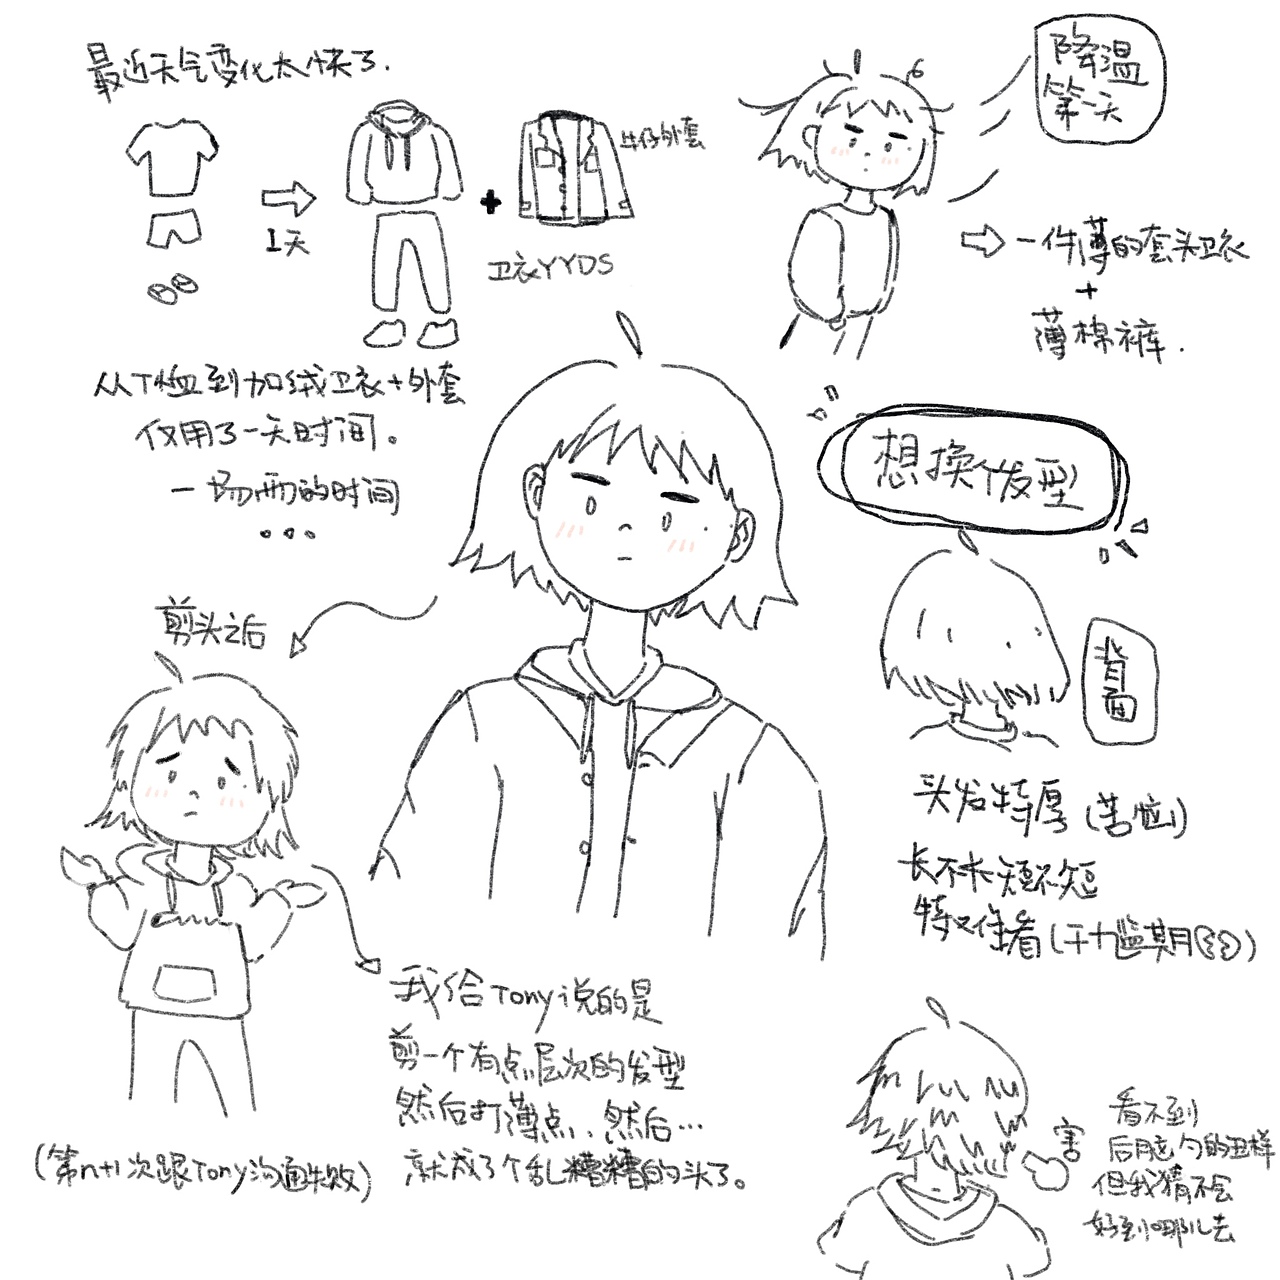 最近天气变化太快了.
1天
+
牛仔外套
卫衣YYDS
从T恤到加绒卫衣+外套
仅用了一天时间。
一场雨的时间
...
降温
第一天
一件薄的套头卫衣
+
薄棉裤.
想换个发型
背面
头发特厚(苦恼)
长不长短不短
特难看(尴尬期
剪头之后
我给Tony说的是
剪一个有点层次的发型
然后打薄点..然后...
就成了个乱糟糟的头了。
(第n+1次跟Tony沟通失败)
害
看不到
后脑勺的丑样
但我猜不会
好到哪儿去